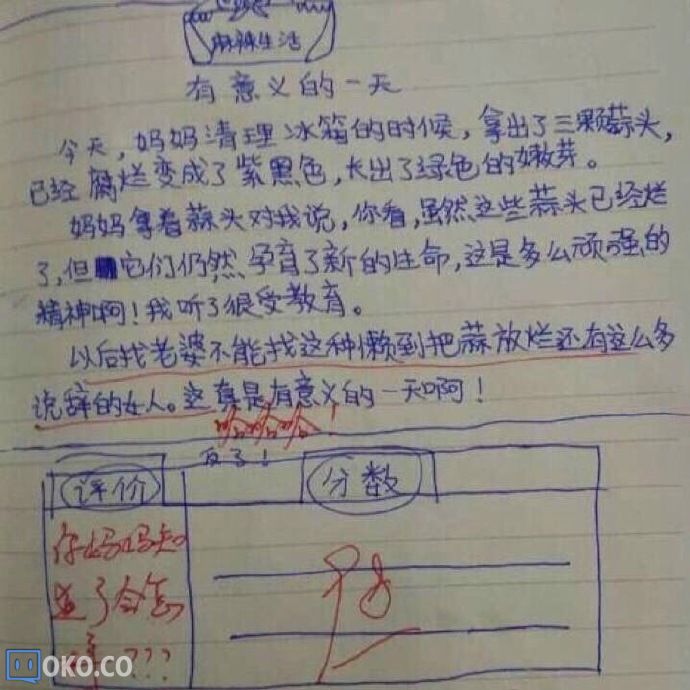 麻辣生活
有意义的一天
今天，妈妈清理冰箱的时候，拿出了三颗蒜头，
已经腐烂变成了紫黑色，长出了绿色的嫩芽。
妈妈拿着蒜头对我说，你看，虽然这些蒜头已经烂
了，但它们仍然孕育了新的生命，这是多么顽强的
精神啊！我听了很受教育。
以后找老婆不能找这种懒到把蒜放烂还有这么多
说辞的女人。这真是有意义的一天啊！
哈哈哈！
评价
分数
你妈妈知
道了会怎
???
98
OKO.CO